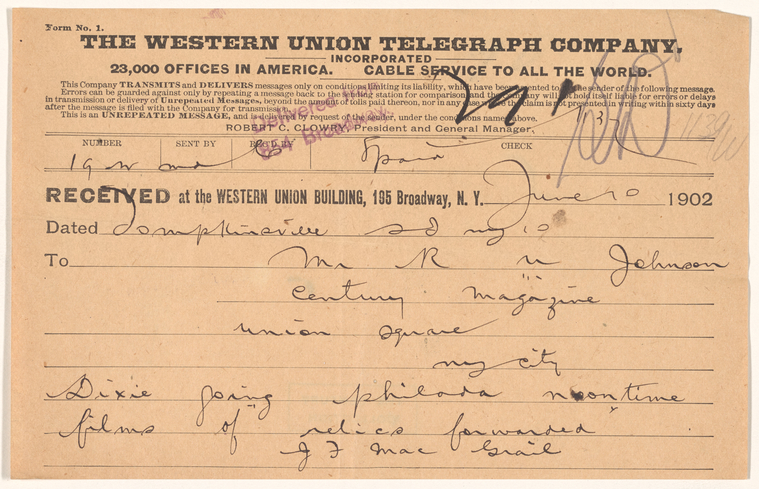 Form No. 1.
THE WESTERN UNION TELEGRAPH COMPANY.
INCORPORATED
23,000 OFFICES IN AMERICA. CABLE SERVICE TO ALL THE WORLD.
This Company TRANSMITS and DELIVERS messages only on conditions limiting its liability, which have been assented to by the sender of the following message.
Errors can be guarded against only by repeating a message back to the sending station for comparison, and the Company will not hold itself liable for errors or delays
in transmission or delivery of Unrepeated Messages, beyond the amount of tolls paid thereon, nor in any case where the claim is not presented in writing within sixty days
after the message is filed with the Company for transmission.
This is an UNREPEATED MESSAGE, and is delivered by request of the sender, under the conditions named above.
ROBERT C. CLOWRY, President and General Manager.
Delivered from
854 Broadway
NUMBER SENT BY REC'D BY CHECK
19 8 paid
RECEIVED at the WESTERN UNION BUILDING, 195 Broadway, N. Y. June 10 1902
Dated Tompkinsville ny 10
To Mr R U Johnson
Century Magazine
union square
ny city
Dixie going philada noontime
films of relics forwarded
J F Mac Grail